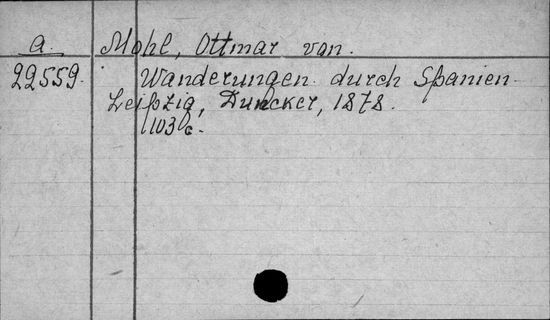 a. Mohl, Ottmar von.
22559. Wanderungen durch Spanien
Leipzig, Duncker, 1878.